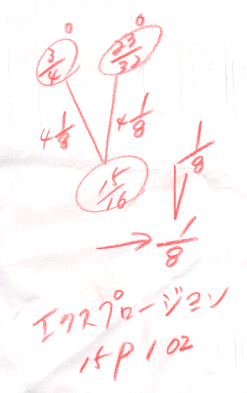 0 0
3/4 23/32
4 1/8 4 1/8
15/16
1/8
→ 1/8
エクスプロージョン
15P102